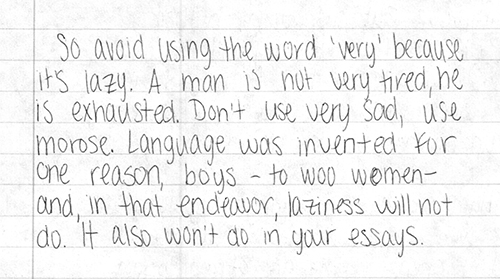 So avoid using the word 'very' because
it's lazy. A man is not very tired, he
is exhausted. Don't use very sad, use
morose. Language was invented for
one reason, boys - to woo women-
and, in that endeavor, laziness will not
do. It also won't do in your essays.